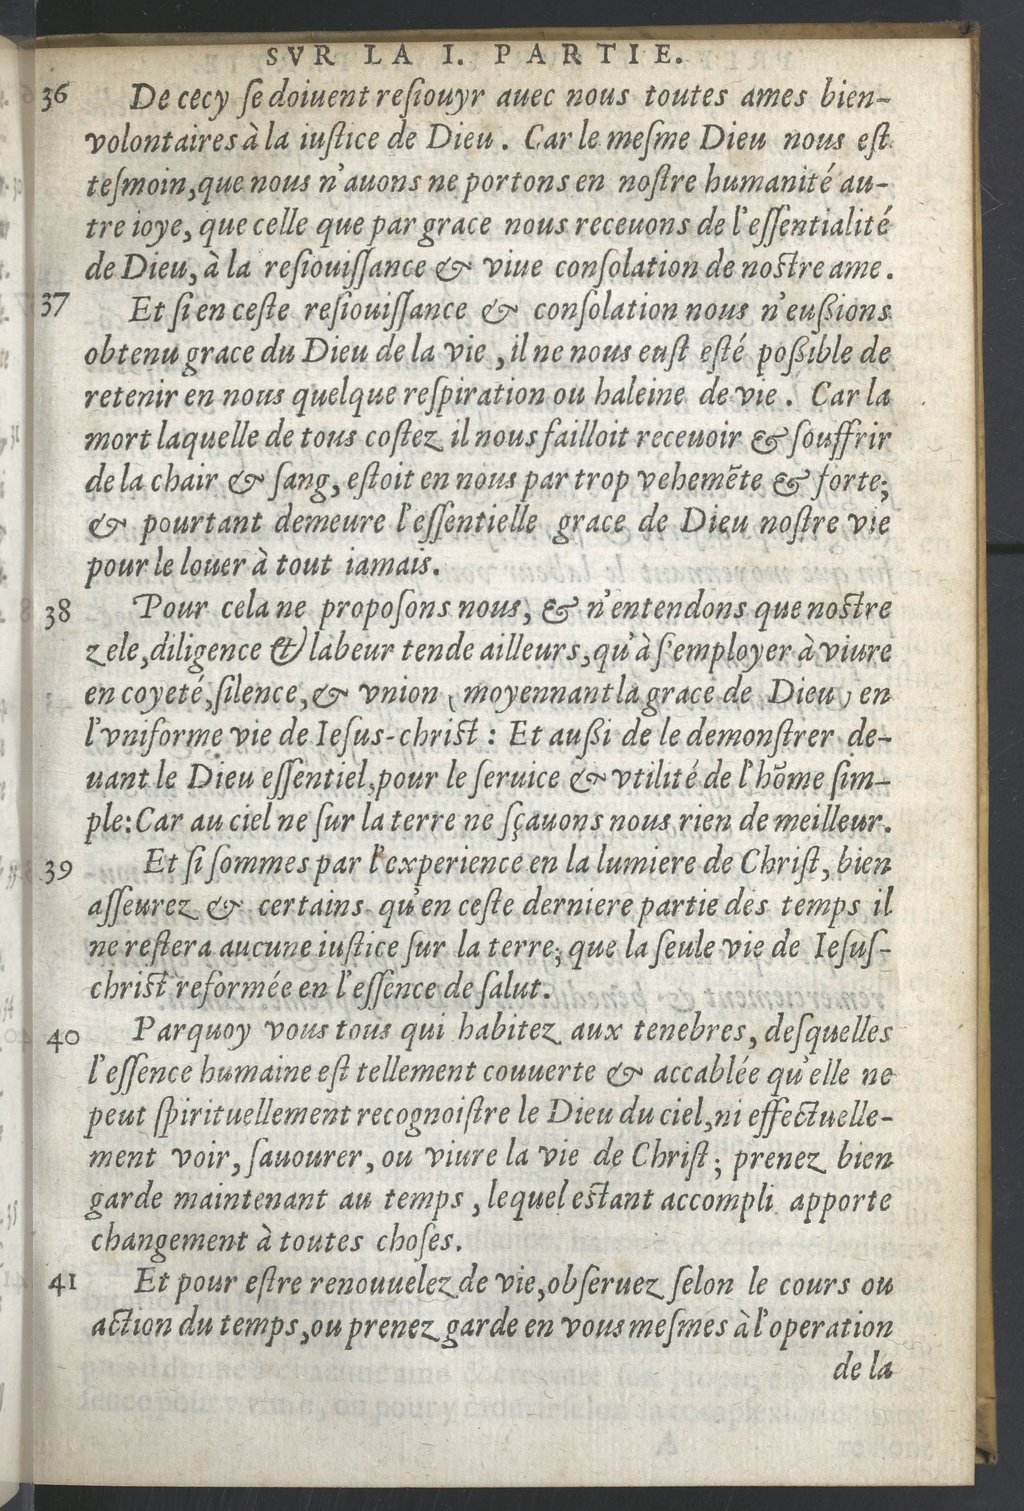 SVR LA I. PARTIE.
36 De cecy ſe doiuent reſiouyr auec nous toutes ames bien-
volontaires à la iuſtice de Dieu. Car le meſme Dieu nous eſt
teſmoin, que nous n'auons ne portons en noſtre humanité au-
tre ioye, que celle que par grace nous receuons de l'eſſentialité
de Dieu, à la reſiouiſſance & viue conſolation de noſtre ame.
37 Et ſi en ceſte reſiouiſſance & conſolation nous n'eußions
obtenu grace du Dieu de la vie, il ne nous euſt eſté poßible de
retenir en nous quelque reſpiration ou haleine de vie. Car la
mort laquelle de tous coſtez il nous failloit receuoir & ſouffrir
de la chair & ſang, eſtoit en nous par trop vehemẽte & forte;
& pourtant demeure l'eſſentielle grace de Dieu noſtre vie
pour le louer à tout iamais.
38 Pour cela ne propoſons nous, & n'entendons que noſtre
zele, diligence & labeur tende ailleurs, qu'à s'employer à viure
en coyeté, ſilence, & vnion (moyennant la grace de Dieu) en
l'vniforme vie de Ieſus-chriſt : Et außi de le demonſtrer de-
uant le Dieu eſſentiel, pour le ſeruice & vtilité de l'hõme ſim-
ple: Car au ciel ne ſur la terre ne ſçauons nous rien de meilleur.
39 Et ſi ſommes par l'experience en la lumiere de Chriſt, bien
aſſeurez & certains qu'en ceſte derniere partie des temps il
ne reſtera aucune iuſtice ſur la terre, que la ſeule vie de Ieſuſ-
chriſt reformée en l'eſſence de ſalut.
40 Parquoy vous tous qui habitez aux tenebres, deſquelles
l'eſſence humaine eſt tellement couuerte & accablée qu'elle ne
peut ſpirituellement recognoiſtre le Dieu du ciel, ni effectuelle-
ment voir, ſauourer, ou viure la vie de Chriſt; prenez bien
garde maintenant au temps, lequel eſtant accompli apporte
changement à toutes choſes.
41 Et pour eſtre renouuelez de vie, obſeruez ſelon le cours ou
action du temps, ou prenez garde en vous meſmes à l'operation
de la